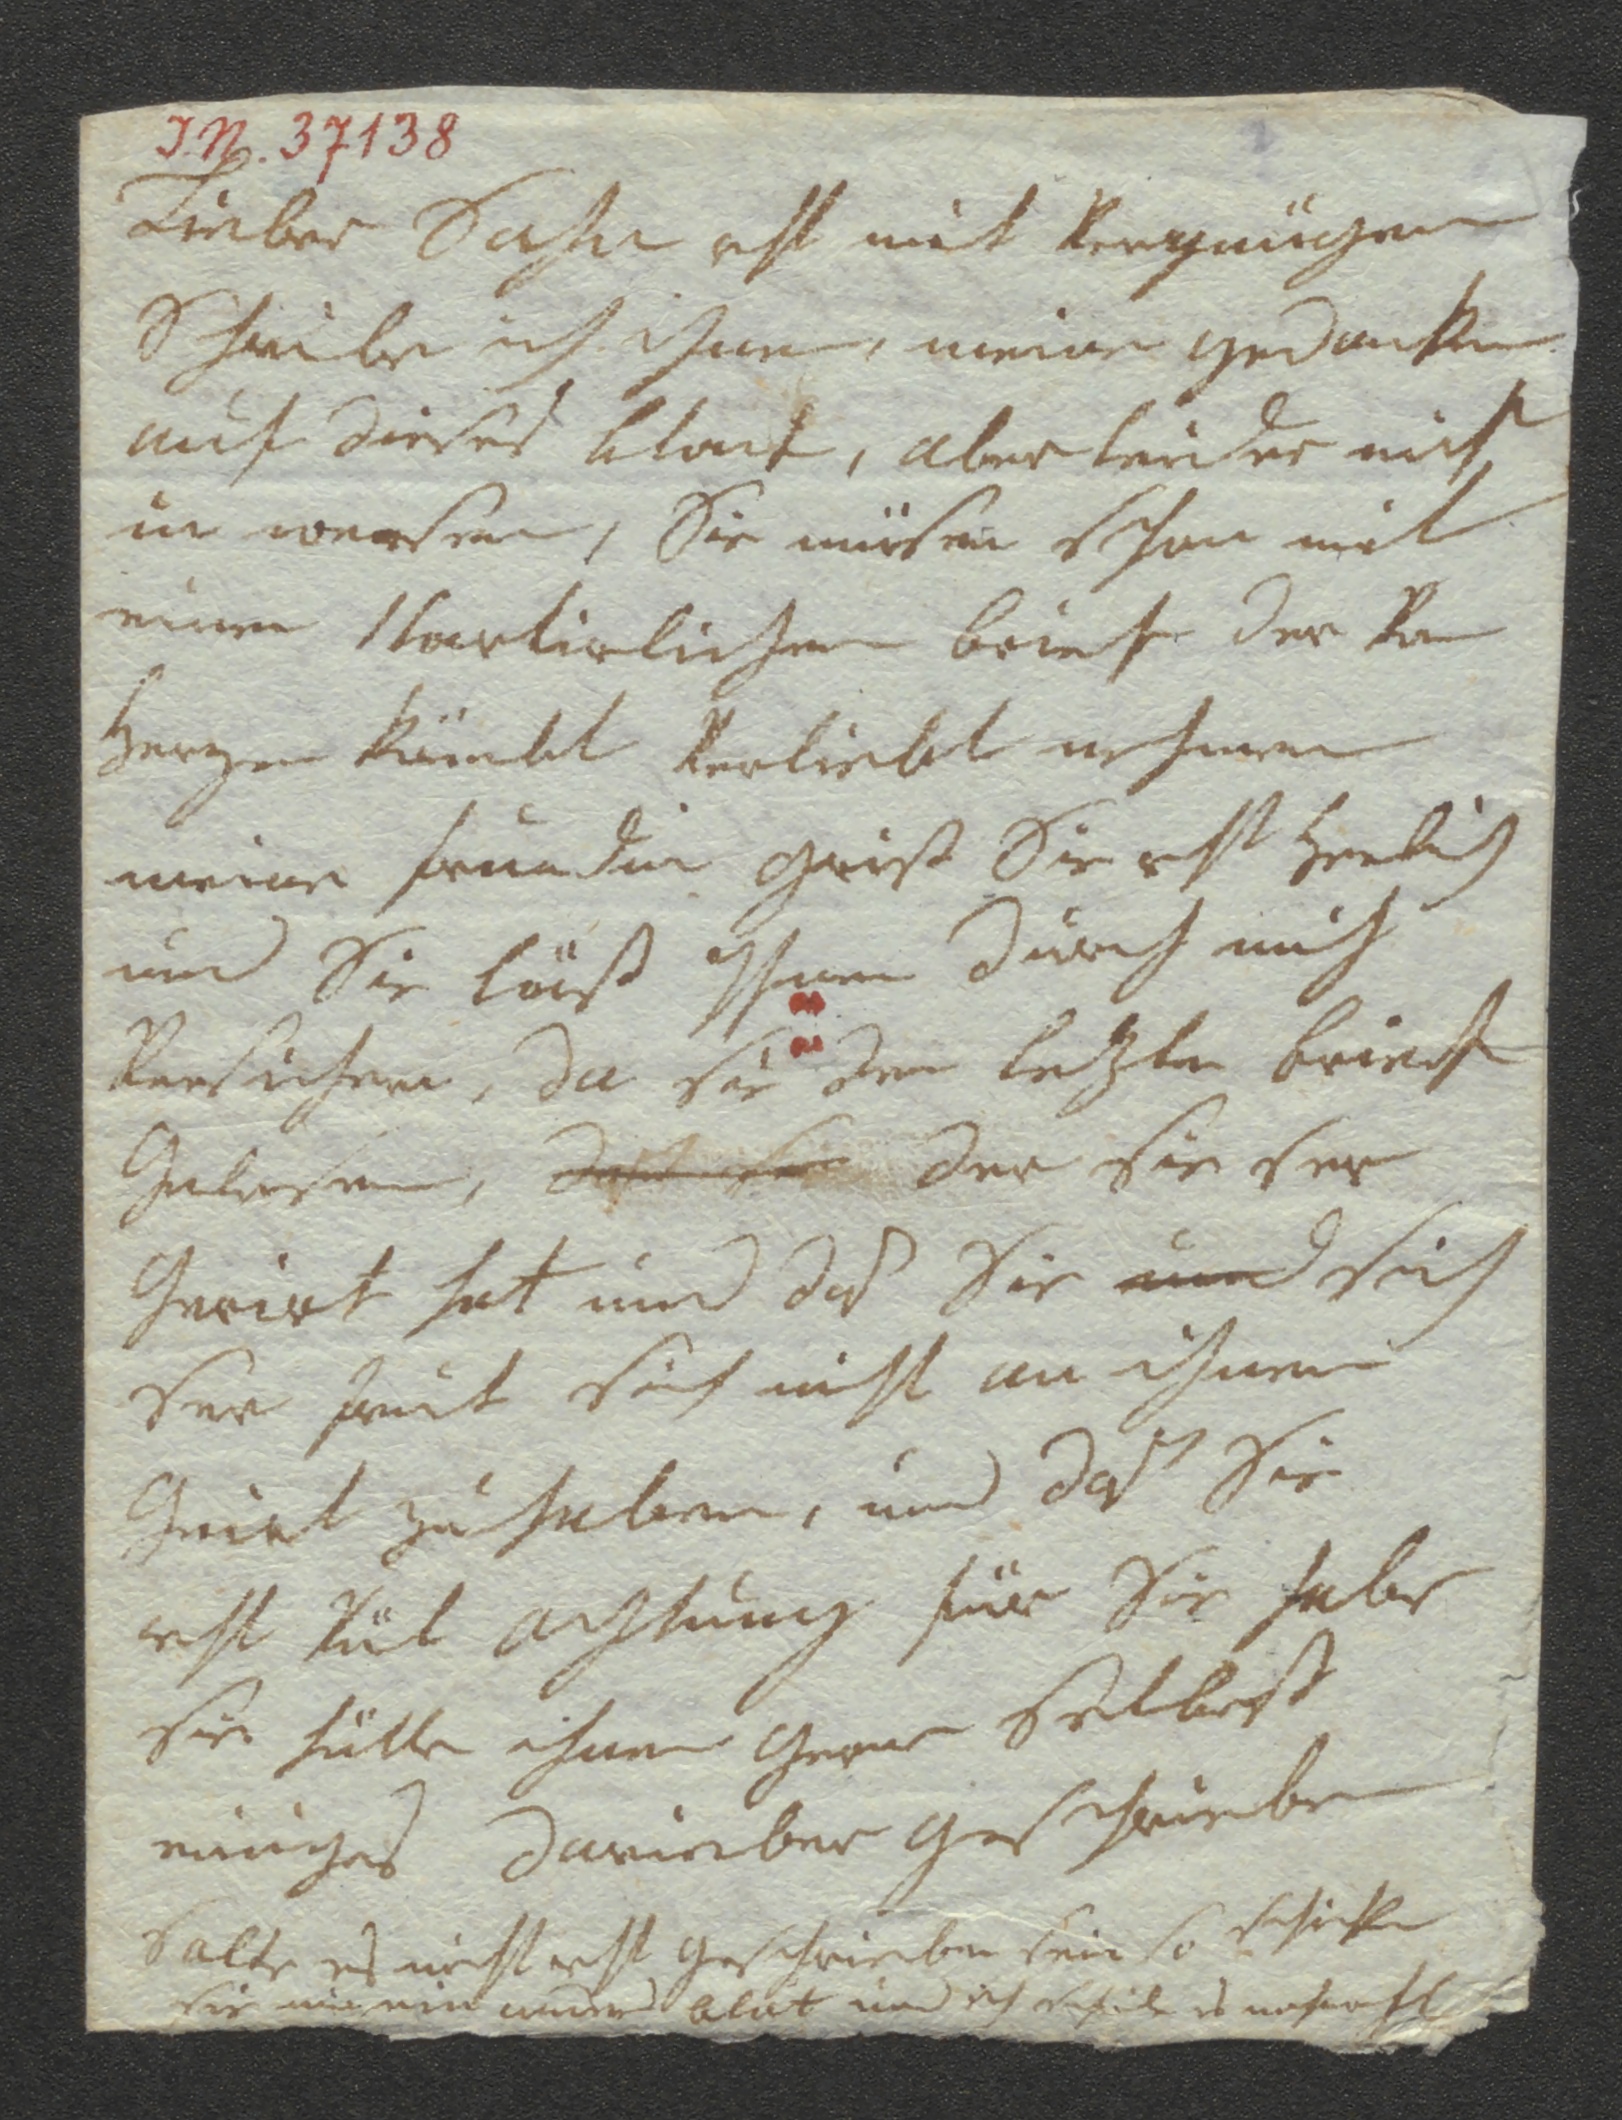 I.N. 37138
Lieber Sohn rst mit Vergnügen
Schreibe ich ihnen, meine gedanken
auf dieses blatt, aber leider nicht
in wersen, Sie müsen schon mit
einen Nartirlichen brief der Von
Herzen kömbt Verliebt nehmen
meine freundin grüst Sie rst Herlich
und Sie läst Ihnen durch mich
Versichern, da sie den letzten brief
Gelesen, der sie ser
Gerirt hat und das Sie und sich
ser freut sich nicht an ihnen
Geirt zu haben, und das Sie
rst Vül achtung für Sie habe
Sie hätte ihnen Gerne Selbest
einiges darieber Geschrieben
Solte es nicht rst Geschrieben sein so schiken
sie mir ein anders blat und ich schreibe es nochmahl